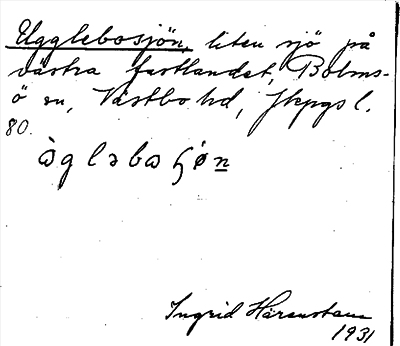 Ugglebosjön, liten sjö på
västra fastlandet, Bolms-
ö sn, Västbo hd, Jkpgs l.
80.
ὰglәbɷɧø̀n
Ingrid Härenstam
1931